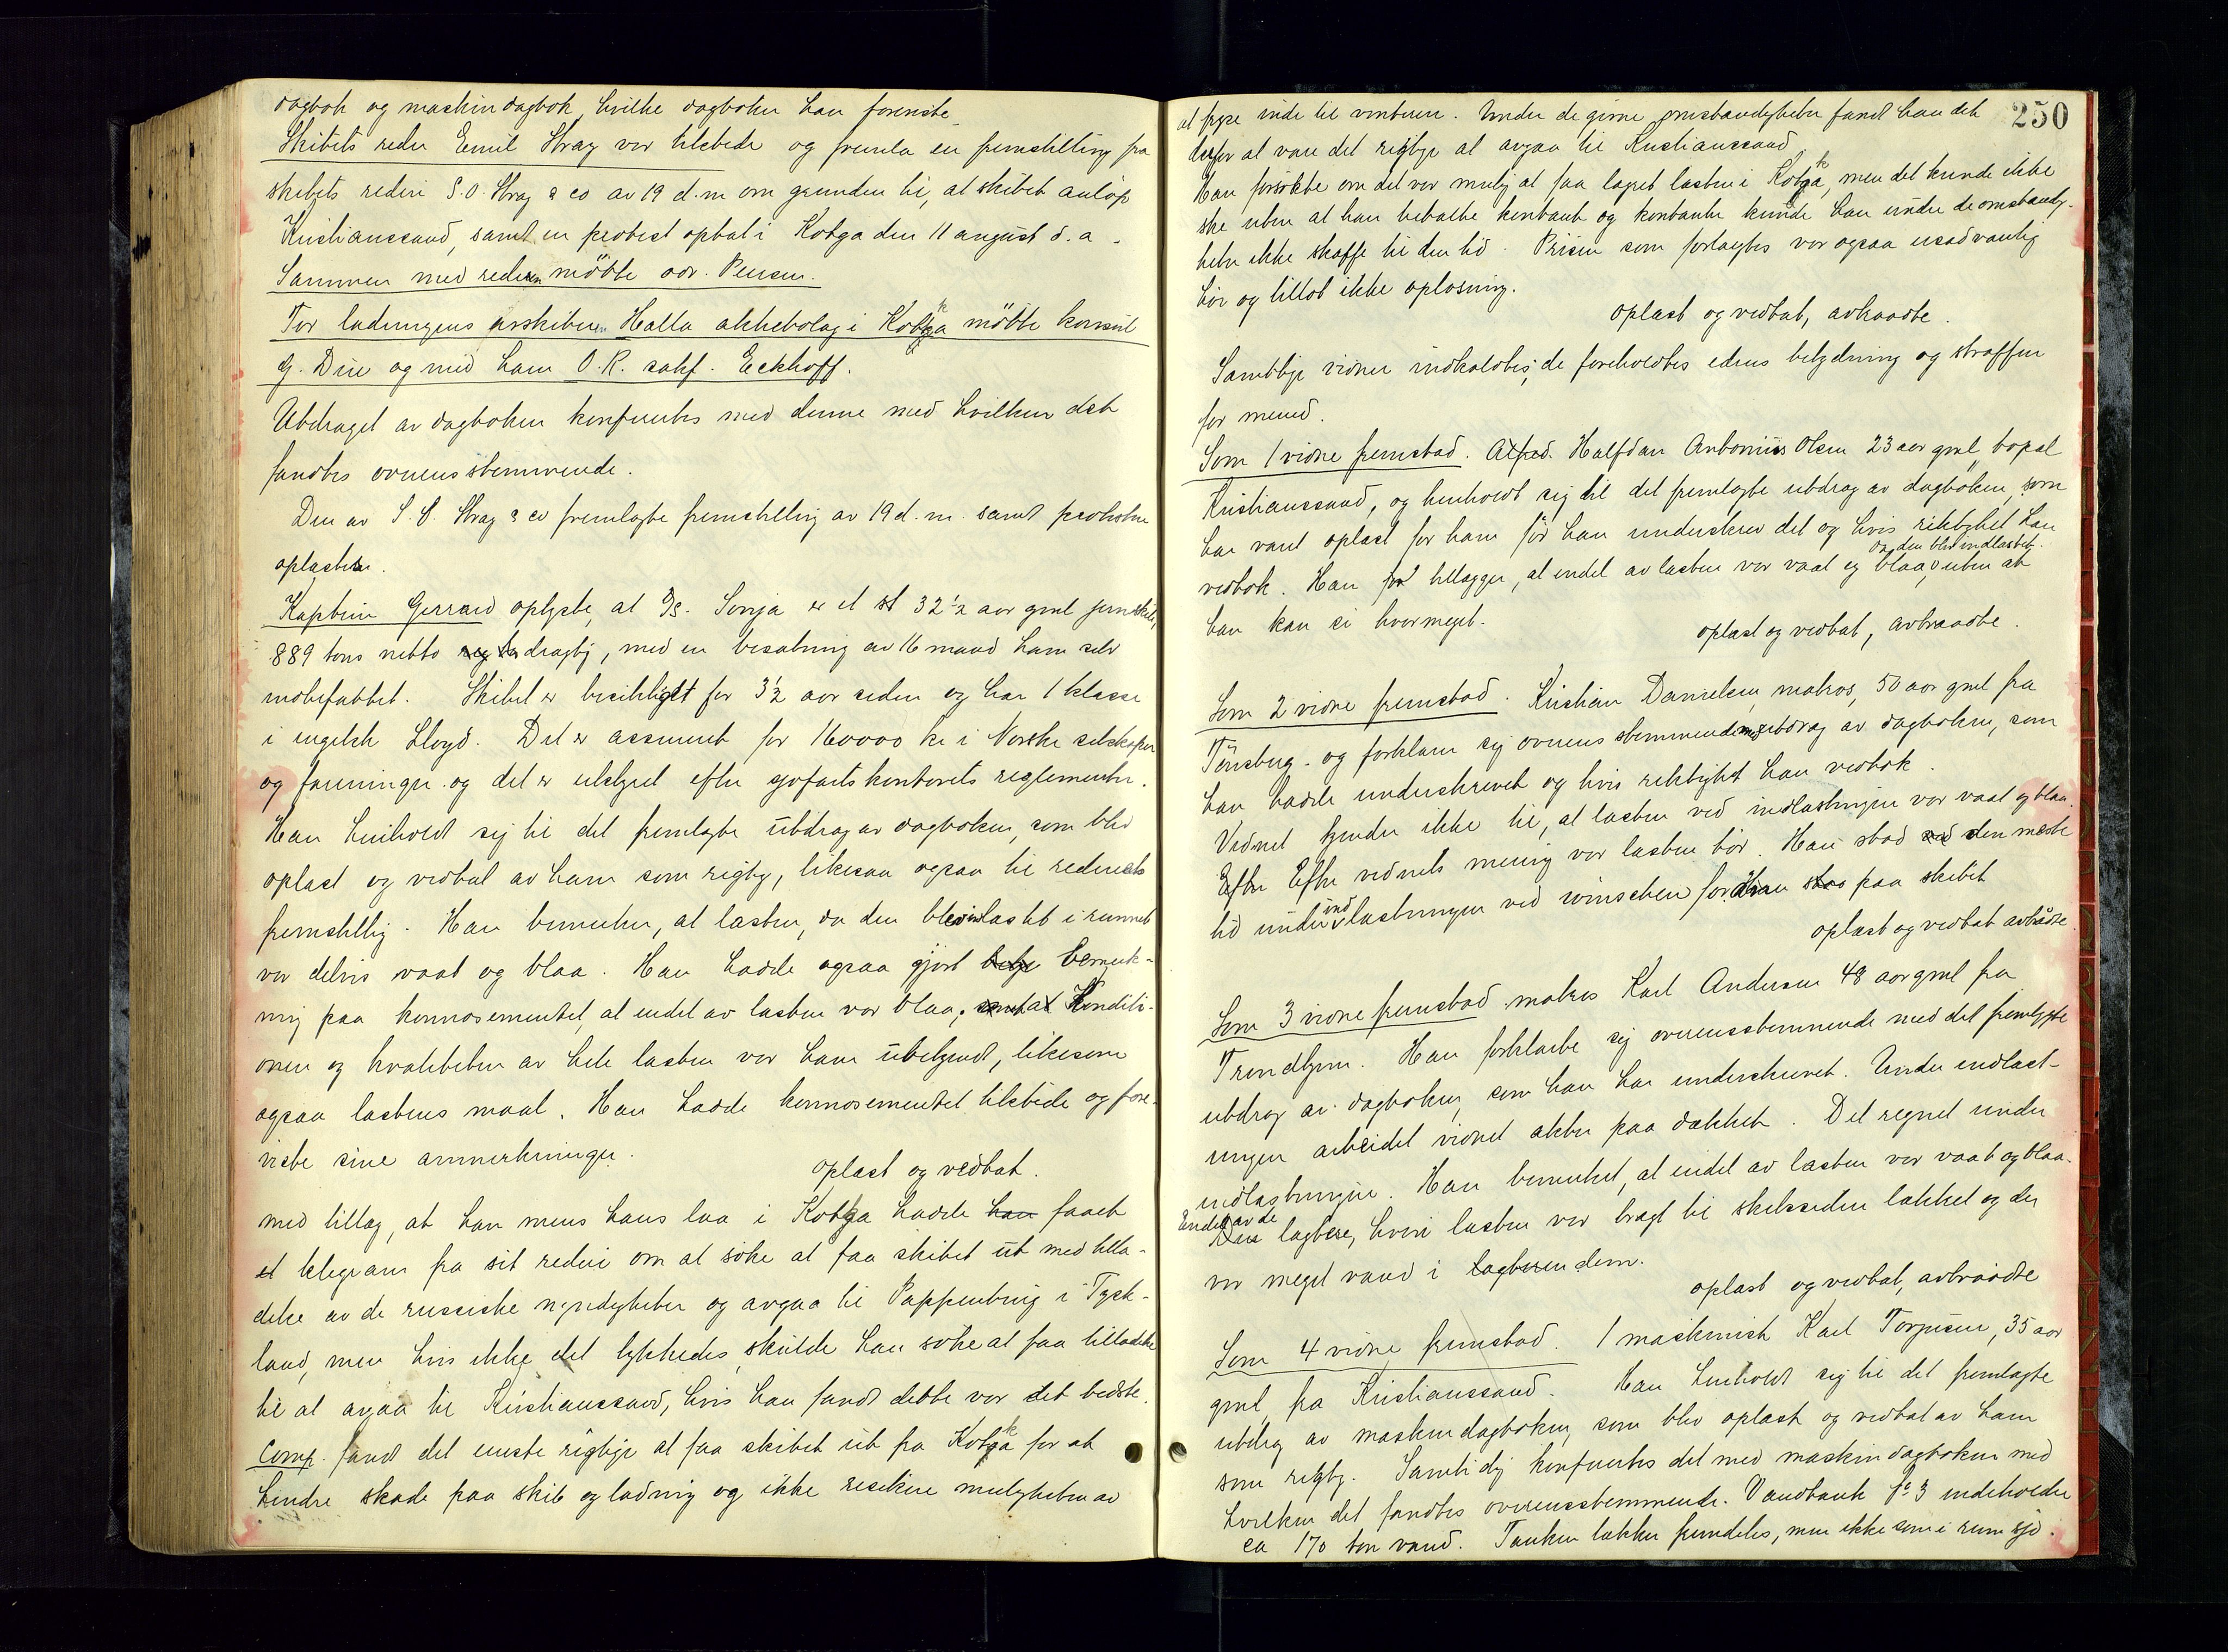 dagbok og maskindagbok, hvilke dagbøker han foreviste.
Skibets reder Emil Stray var tilstede og fremla en fremstilling fra
skibets rederi S.O. Stray & co av 19 d.m om grunden til, at skibet anløp
Kristianssand, samt en protest optat i Kotka den 11 august d.a.
Sammen med rederen møtte adv. Pensen.
For ladningens avskibere Halla aktiebolag i Kotka møtte konsul
G. Due og med ham O.R. sakf. Eckhoff.
Utdraget av dagboken konfertes med denne med hvilken det
fandtes overensstemmende.
Den av S.O. Stray & co fremlagte fremstilling av 19 d.m. samt protesten
oplæstes.
Kaptein Gerrard oplyste, at D/S. Sonja er et 32½ aar gml jernskib,
889 tons netto drægtig, med en besætning av 16 mand ham selv
indbefattet. Skibet er besiktiget for 3½ aar siden og har 1 klasse
i engelsk Lloyd. Det er assurert for 160000 kr i Norske selskaper
og foreninger og det er utstyret efter sjøfartskontorets reglementer.
Han henholdt sig til det fremlagte utdrag av dagboken, som blev
oplæst og vedtat av ham som rigtig, likesaa ogsaa til rederiets
fremstillig. Han bemerker, at lasten, da den blev indlastet i rummet
var delvis vaat og blaa. Han hadde ogsaa gjort bemerk-
ning paa konnosementet, at endel av lasten var blaa, samt at konditi-
onen og kvaliteten av hele lasten var ham ubekjendt, likesom
ogsaa lastens maal. Han hadde konnosementet tilstede og fore-
viste sine anmerkninger.
oplæst og vedtat.
med tillæg, at han mens hans laa i Kotka hadde han faaet
et telegram fra sit rederi om at søke at faa skibet ut med tilla-
delse av de russiske myndigheter og avgaa til Pappenburg i Tysk-
land, men hvis ikke det lykkedes skulde han søke at faa tilladelse
til at avgaa til Kristianssand, hvis han fandt dette var det bedste.
Comp. fandt det eneste rigtige at faa skibet ut fra Kotka for at
hindre skade paa skib og ladning og ikke resikere muligheten av
250
at fryse inde til vinteren. Under de givne omstændigheter fandt han det
derfor at være det rigtige at avgaa til Kristianssand.
Han forsøkte om det var mulig at faa lagret lasten i Kotka, men det kunde ikke
ske uten at han betalte kontant og kontanter kunde han under de omstændig-
heter ikke skaffe til den tid. Prisen som forlangtes var ogsaa usedvanlig
høi og tillot ikke oplosning.
oplæst og vedtat, avtraadte.
Samtlige vidner indkaldtes; de foreholdtes edens betydning og straffen
for mened.
Som 1 vidne fremstod. Alfred Halfdan Antonius Olsen 23 aar gml, bopæl
Kristianssand, og henholdt sig til det fremlagte utdrag av dagboken, som
har været oplæst for ham før han underskrev det og hvis riktighet han
vedtok. Han tillægger, at endel av lasten var vaat og blaa, da den blev indlastet, uten at
han kan si hvormeget.
oplæst og vedtat, avtraadte.
Som 2 vidne fremstod. Kristian Danielsen, matros, 50 aar gml fra
Tönsberg og forklarer sig overensstemmende med utdrag av dagboken, som
han hadde underskrevet og hvis riktighet han vedtok.
Vidnet kjender ikke til, at lasten ved indlastningen var vaat og blaa.
Efter Efter vidnets mening var lasten tör. Han stod ved den meste
tid under indlastningen ved winschen forut paa skibet
oplæst og vedtat avtrådte.
Som 3 vidne fremstod matros Karl Andersen 48 aar gml fra
Trondhjem. Han forklarte sig overensstemmende med det fremlagte
utdrag av dagboken, som han har underskrevet. Under indlast-
ningen arbeidet vidnet akter paa dækket. Det regnet under
indlastningen. Han bemerket, at endel av lasten var vaat og blaa.
Endel av de lægtere, hvori lasten var bragt til skibssiden lækket og der
var meget vand i lægteren dem.
oplæst og vedtat, avtraadte
Som 4 vidne fremstod. 1 maskinist Karl Torjusen, 35 aar
gml, fra Kristianssand. Han henholdt sig til det fremlagte
utdrag av maskindagboken, som blev oplæst og vedtat av ham
som rigtig. Samtidig konfertes det med maskindagboken med
hvilken det fandtes overensstemmende. Vandtank № 3 indeholder
ca 170 ton vand. Tanken lækker fremdeles, men ikke som i rum sjø.